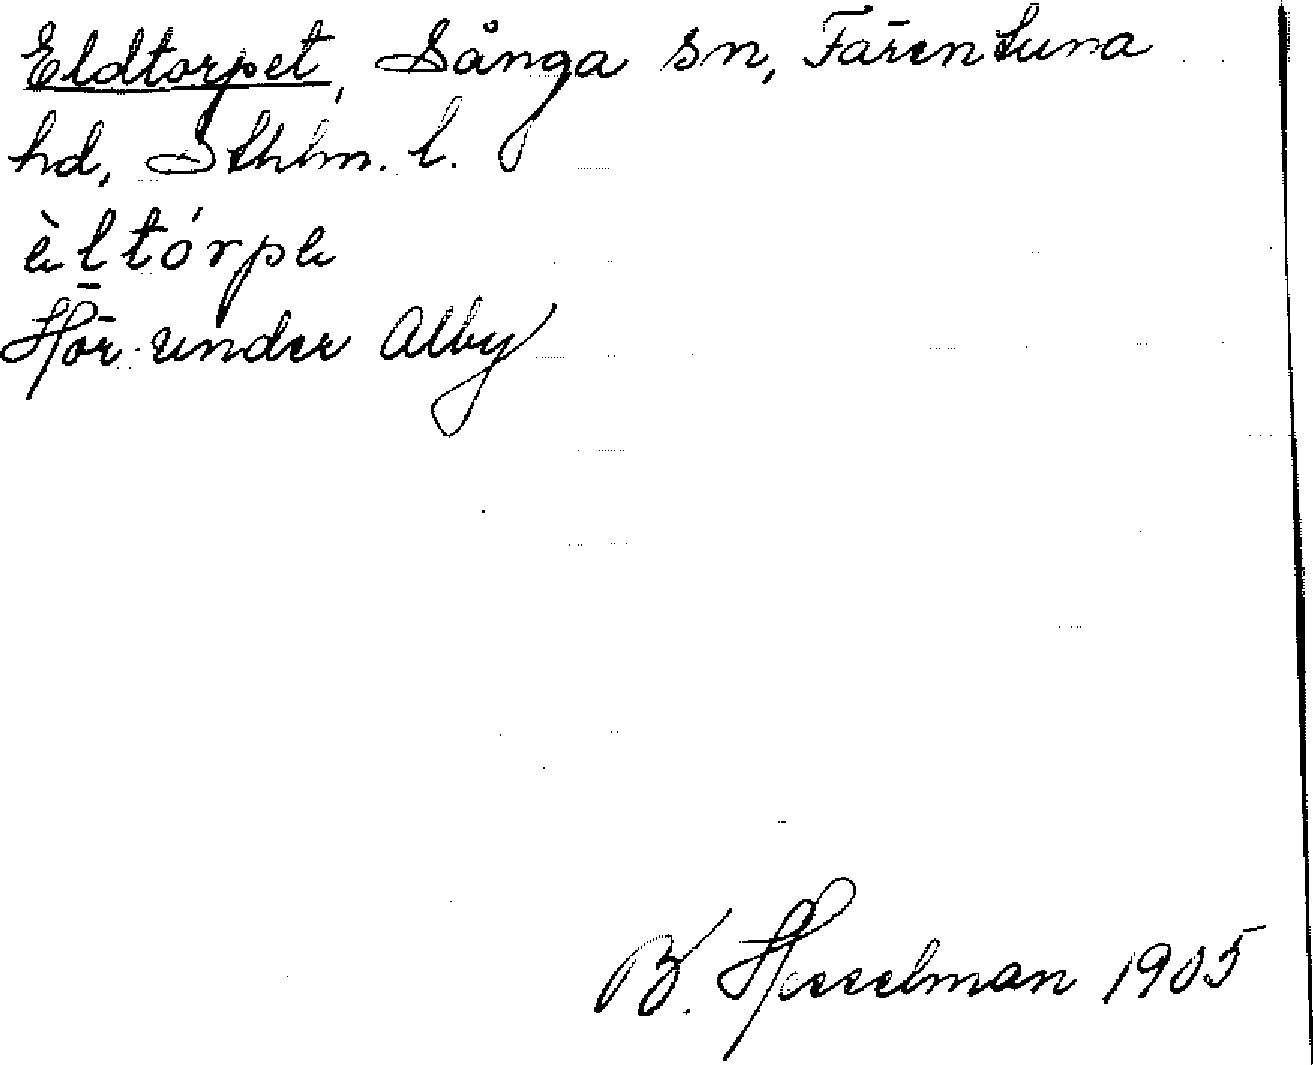 Eldtorpet, Sånga sn, Färentuna
hd, Sthlm. l.
èl̲tórpe
Hör under Alby
B. Hesselman 1905